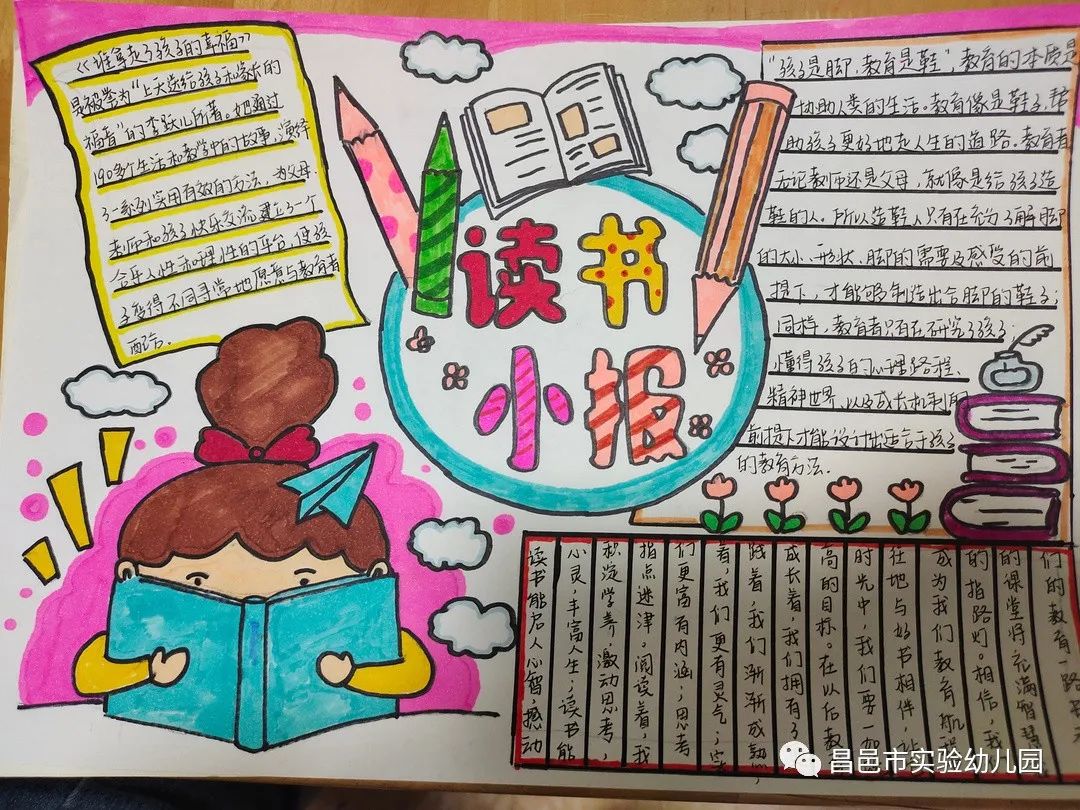 《谁拿走了孩子的幸福》
是被誉为“上天送给孩子和家长的
福音”的李跃儿所著。她通过
190多个生活和教学中的故事，演绎
了一系列实用有效的方法，为父母、
老师和孩子快乐交流，建立了一个
合乎人性和理性的平台，使孩
子变得不同寻常地愿意与教育者
配合。
读书
小报
“孩子是脚，教育是鞋”，教育的本质是
协助人类的生活。教育像是鞋子，帮
助孩子更好地走人生的道路。教育者
无论教师还是父母，就像是给孩子造
鞋的人。所以造鞋人只有在充分了解脚
的大小、形状、脚的需要及感受的前
提下，才能够制造出合脚的鞋子；
同样，教育者只有在研究了孩子；
懂得孩子的心理路程、
精神世界、以及成长机制的
前提下才能设计出适合于孩子
的教育方法。
读书能启人心智，撼动
心灵，丰富人生；读书能
积淀学养，激动思考，
指点迷津。阅读着，我
们更富有内涵；思考
着，我们更有灵气；实
践着，我们渐渐成熟；
成长着，我们拥有了
高的目标。在以后教
时光中，我们要一如
往地与好书相伴，让
成为我们教育航程
的指路灯。相信，我
的课堂将充满智慧
们的教育一路
昌邑市实验幼儿园